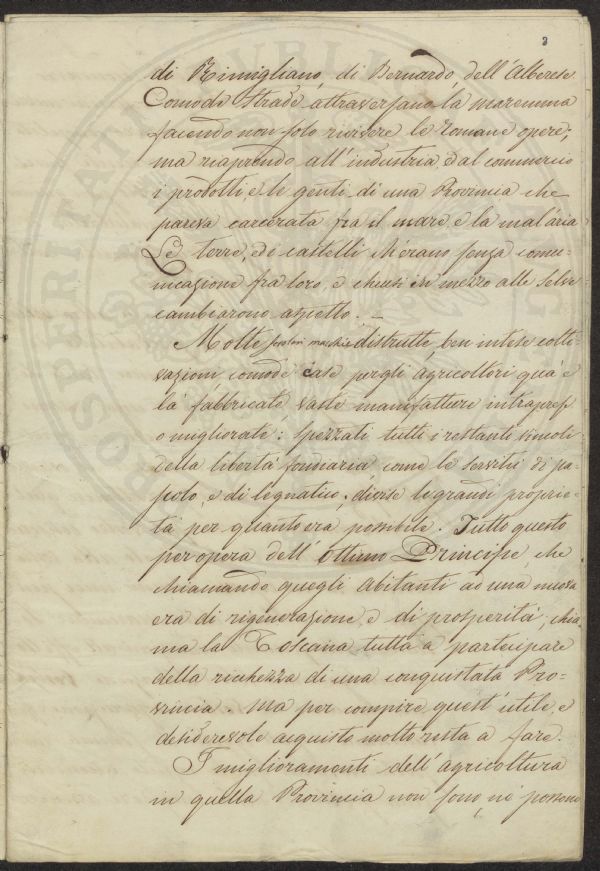 3
di Rimigliano, di Bernardo, dell'Alberese
Comode Strade attraversano la maremma
facendo non solo rivivere le romane opere;
ma riaprendo all'industria, e al commercio
i prodotti, e le genti di una Provincia che
pareva carcerata fra il mare, e la mal'aria
Le torre, e i castelli ch'erano senza comu=
nicazione fra loro, e chiusi in mezzo alle Selve
cambiarono aspetto. _
Molte macchie distrutte, ben intese colti=
vazioni, comode case per gli agricoltori quà e
là fabbricate, vaste manifatture intraprese
o migliorate: spezzati tutti i restanti vincoli
della libertà fondiaria come le servitù di pa=
scolo, e di legnatico; divise le grandi proprie=
tà per quanto era possibile. Tutto questo
per opera dell'Ottimo Principe, che
chiamando quegli abitanti ad una nuova
era di rigenerazione, e di prosperità, chia=
ma la Toscana tutta a partecipare
della ricchezza di una conquistata Pro=
vincia. Ma per compire quest'utile, e
desiderevole acquisto molto resta a fare.
I miglioramenti dell'agricoltura
in quella Provincia non sono, nè possono
PROSPERITATI PUBLICAE